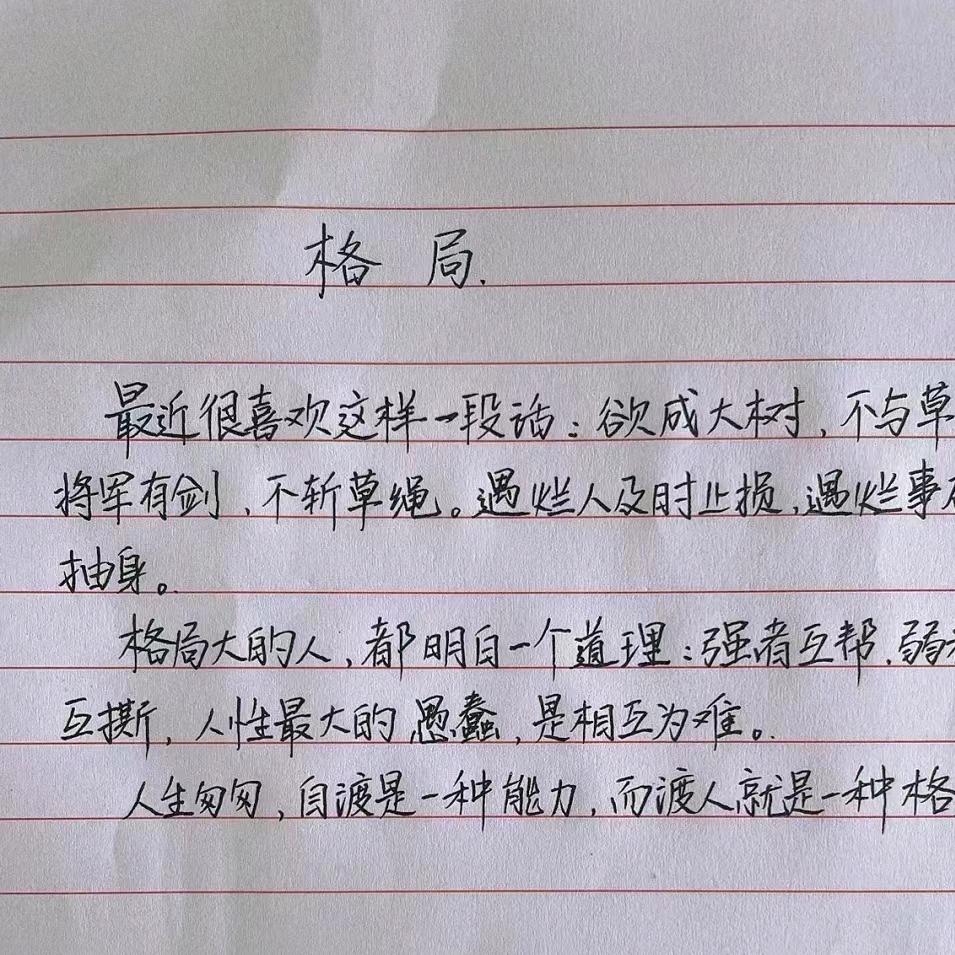 格局.
最近很喜欢这样一段话：欲成大树，不与草
将军有剑，不斩草绳。遇烂人及时止损，遇烂事
抽身。
格局大的人，都明白一个道理：强者互帮，弱
互撕，人性最大的愚蠢，是相互为难。
人生匆匆，自渡是一种能力，而渡人就是一种格